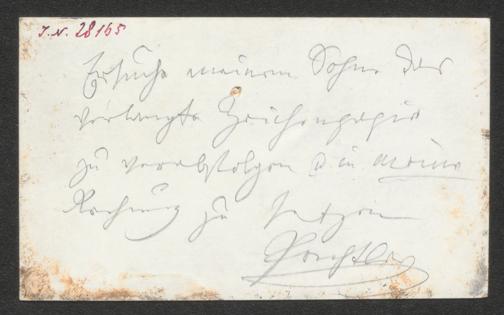 J.N. 28165
Ersuche meinem Sohne das
verlangte Zeichenpapier
zu verabfolgen & in meine
Rechnung zu setzen